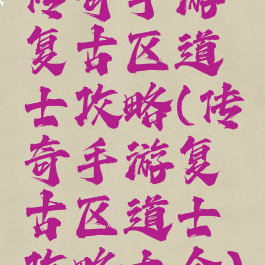 传奇手游
复古区道
士攻略(传
奇手游复
古区道士
攻略大全)